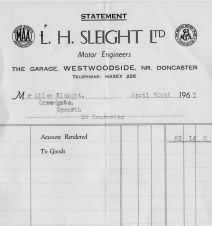 STATEMENT
L. H. SLEIGHT LTD
Motor Engineers
THE GARAGE, WESTWOODSIDE, NR. DONCASTER
TELEPHONE: HAXEY 226
Mr Allen Sleight, April 10th 1967
Greengate,
Epworth
Nr Doncaster
Account Rendered 82 14 0
To Goods